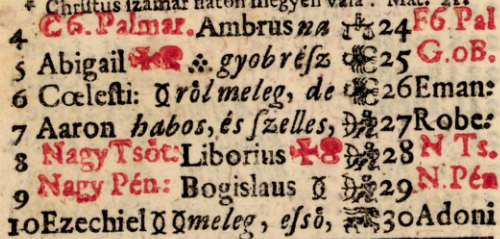 * Christus szamár háton mégyen vala. Mat. 21.
4 C6. Palmar. Ambrus na 24 F6 Pal
5 Abigail gyobrész 25 G.oB.
6 Cœlesti: ről meleg, de 26 Eman:
7 Aaron habos, és ſzelles, 27 Robe:
8 Nagy Tsöt: Liborius 28 N Ts.
9 Nagy Pén: Bogislaus 29 N. Pén
10 Ezechiel meleg, eſső, 30 Adoni